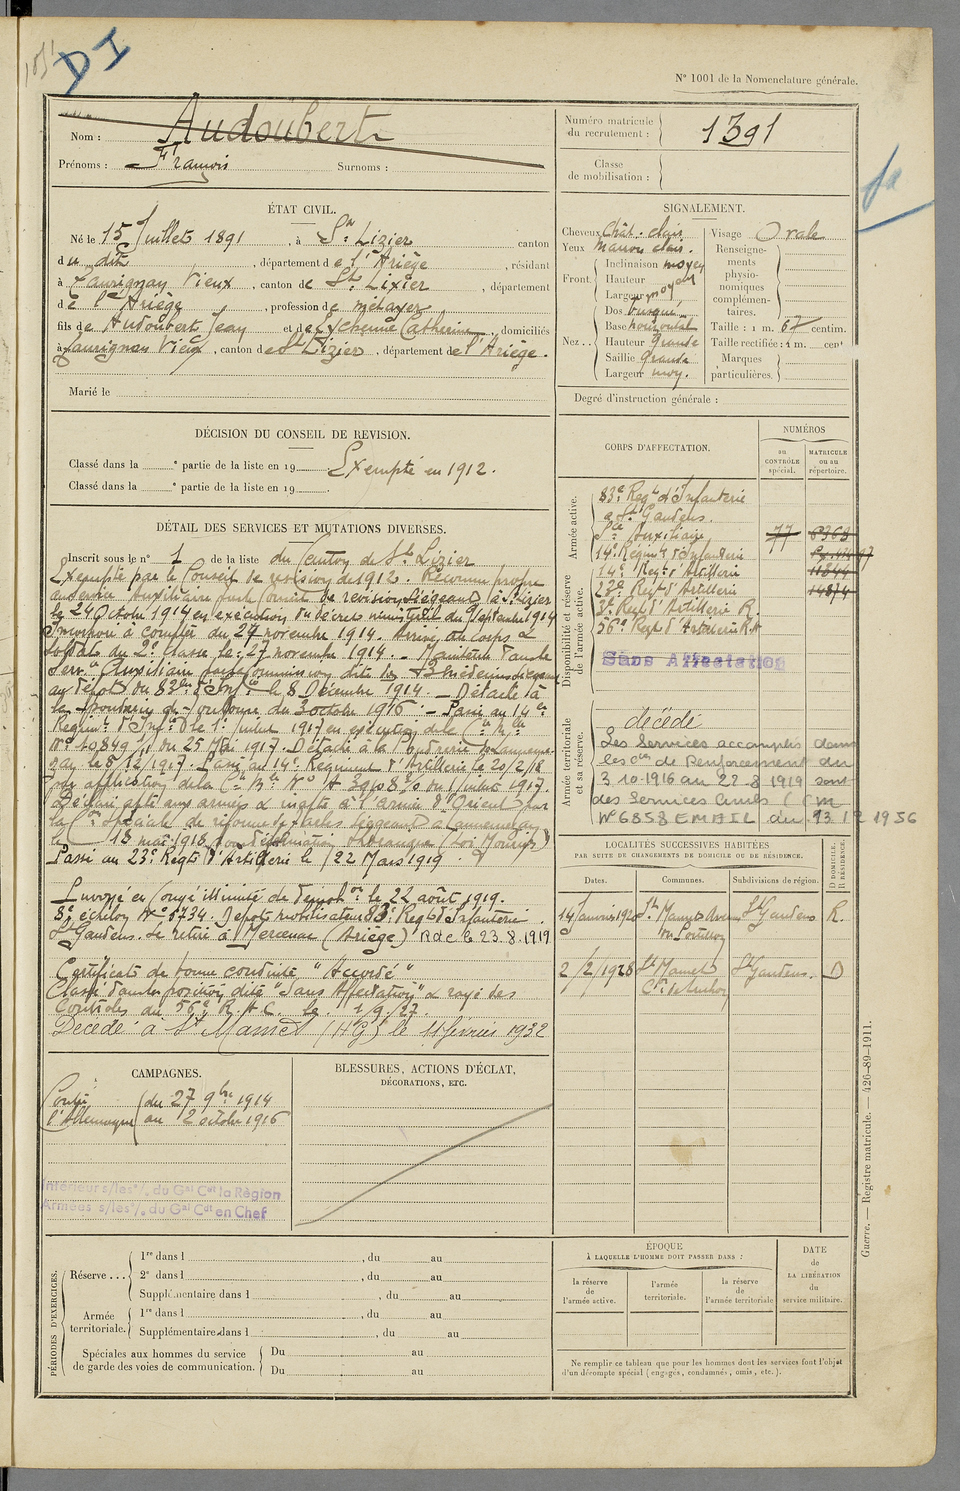 DI
N° 1001 de la Nomenclature générale.
Nom : Audoubert
Prénoms : François Surnoms :
Numéro matricule du recrutement : 1391
Classe de mobilisation :
ÉTAT CIVIL.
Né le 15 Juillet 1891, à St Lizier, canton
du dit, département de l'Ariège, résidant
à Taurignan Vieux, canton de St Lizier, département
de l'Ariège, profession de métayer
fils de Audoubert Jean et de Eychenne Catherine, domiciliés
à Taurignan Vieux, canton de St Lizier, département de l'Ariège.
Marié le
SIGNALEMENT.
Cheveux Chât. clair
Yeux Marron clair.
Front Inclinaison moyen
Hauteur moyen
Largeur moyen
Nez Dos busqué
Base horizontal
Hauteur Grande
Saillie Grande
Largeur moy.
Visage Ovale
Renseignements physionomiques complémentaires.
Taille : 1 m. 67 centim.
Taille rectifiée : 1 m. cent
Marques particulières.
Degré d'instruction générale :
DÉCISION DU CONSEIL DE REVISION.
Classé dans la ° partie de la liste en 19 Exempté en 1912.
Classé dans la ° partie de la liste en 19 .
DÉTAIL DES SERVICES ET MUTATIONS DIVERSES.
Inscrit sous le n° 1 de la liste du Canton de St Lizier
Exempté par le Conseil de revision de 1912. Reconnu propre
au service Auxiliaire par le Conseil de revision siégeant à St Lizier
le 24 Octobre 1914 en exécution du décret ministériel du 9 septembre 1914
Incorporé à compter du 27 novembre 1914. Arrivé au corps &
soldat de 2e classe le 27 novembre 1914. – Maintenu dans le
Serv. Auxiliaire par Commission dite des 3 médecins siégeant
au dépôt du 83e d'Inf. le 8 Décembre 1914. – Détaché à
la Poudrerie de Toulouse du 3 octobre 1916. – Passé au 14e
Régim. d'Inf. le 1er juillet 1917 en exécution de la Cre Mlle
N° 10849 du 25 Mai 1917. Détaché à la Poudrerie de Lanneme-
zan le 8/12/1917. Passé au 14e Régiment d'Artillerie le 20/2/18
par application de la Cre Mlle N° du 1er juillet 1917.
Déclaré apte aux armées & inapte à l'armée d'Orient par
la Con spéciale de réforme siégeant à Lannemezan
le 18 mai 1918 (Loi Mourier)
Passé au 23e Regt d'Artillerie le 22 Mars 1919.
Envoyé en Congé illimité de démobon le 22 août 1919.
8e échelon N° 8734. Dépôt mobilisateur 83e Regt d'Infanterie
St Gaudens. Se retire à Mercenac (Ariège) R d c le 23.8.1919
Certificat de bonne conduite "Accordé"
Classé dans la position dite "Sans Affectation" & rayé des
Contrôles du 56e R.A.C. le 1/9/27.
Décédé à St Mamet (H G) le 11 février 1932
CORPS D'AFFECTATION.
NUMÉROS
au CONTRÔLE spécial.
MATRICULE ou au répertoire.
Armée active.
83e Regt d'Infanterie
à St Gaudens.
Sce Auxiliaire 77 8363
14e Régimt d'Infanterie
Disponibilité et réserve de l'armée active.
14e Regt d'Artillerie 11844
23e Regt d'Artillerie 14874
Regt d'Artillerie R.
56e Regt d'Artillerie
Sans Affectation
Armée territoriale et sa réserve.
décédé
Les Services accomplis dans
les Cies de Renforcement du
3 10-1916 au 22-8 1919 sont
des Services Civils (CM
N° 6858 EMAIL du 13 12 1956
LOCALITÉS SUCCESSIVES HABITÉES
PAR SUITE DE CHANGEMENTS DE DOMICILE OU DE RÉSIDENCE.
Dates. Communes. Subdivisions de région. D DOMICILE. R RÉSIDENCE.
14 Janvier 1920 St Mamet St Gaudens R.
2/2/1928 St Mamet St Gaudens. D
Cton de Luchon
CAMPAGNES.
Contre l'Allemagne
du 27 9bre 1914
au 2 octobre 1916
Intérieur s/les °/. du Gal Cdt la Région
Armées s/les °/. du Gal Cdt en Chef
BLESSURES, ACTIONS D'ÉCLAT,
DÉCORATIONS, ETC.
PÉRIODES D'EXERCICES.
Réserve... 1re dans l , du au
2e dans l , du au
Supplémentaire dans l , du au
Armée territoriale. 1re dans l , du au
Supplémentaire dans l , du au
Spéciales aux hommes du service
de garde des voies de communication.
Du au
Du au
ÉPOQUE
À LAQUELLE L'HOMME DOIT PASSER DANS :
la réserve de l'armée active.
l'armée territoriale.
la réserve de l'armée territoriale
DATE de LA LIBÉRATION du service militaire.
Ne remplir ce tableau que pour les hommes dont les services font l'objet
d'un décompte spécial (engagés, condamnés, omis, etc.).
Guerre. — Registre matricule. — 426-89-1911.